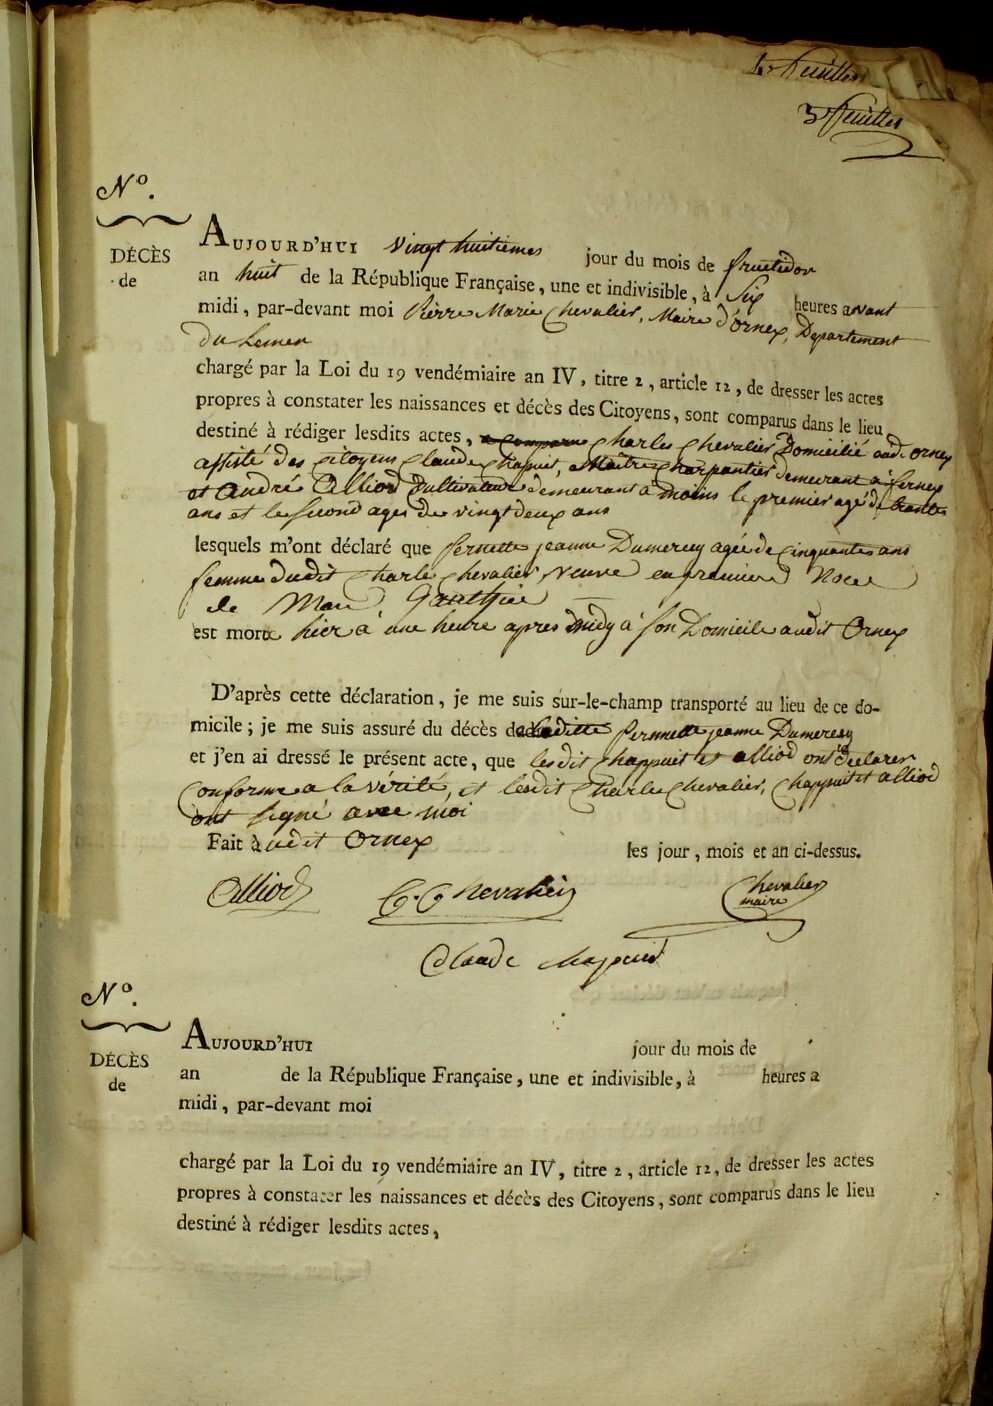 feuilles
3 feuilles
Nº.
DÉCÈS
de
AUJOURD'HUI vingt huitiemes jour du mois de fructidor
an huit de la République Française, une et indivisible, à six heures avant
midi, par-devant moi Pierre Marie Chevalier, Maire d'ornex, Departement
Du Leman
chargé par la Loi du 19 vendémiaire an IV, titre 2, article 12, de dresser les actes
propres à constater les naissances et décès des Citoyens, sont comparus dans le lieu
destiné à rédiger lesdits actes, a comparu Charles Chevalier Domicilié audi ornex
assisté des citoyens Claude Chapuit, Maitre Charpentier demeurant à fernex
et André Alliod Cultivateur demeurant à moins le premier agé de trente
ans et le second ages de vingt deux ans
lesquels m'ont déclaré que pernette jeanne Dumerey agée de Cinquantes ans
femme dudit Charle Chevalier veuve en premiere Noce
de Marc Gauthier
est morte hier à une heure apres midy à son Domicile audit Ornex
D'après cette déclaration, je me suis sur-le-champ transporté au lieu de ce do-
micile; je me suis assuré du décès de laditte pernette jeanne Dumerey
et j'en ai dressé le présent acte, que lesdit Chappuit et alliod ont declarer
Conforme a la vérité, et lesdit Charle Chevalier, Chappuit et alliod
ont signé avec moi
Fait à udit Ornex les jour, mois et an ci-dessus.
Alliod C. Chevalier Chevalier
maire
Claude Chapuit
Nº.
DÉCÈS
de
AUJOURD'HUI jour du mois de
an de la République Française, une et indivisible, à heures a
midi, par-devant moi
chargé par la Loi du 19 vendémiaire an IV, titre 2, article 12, de dresser les actes
propres à constater les naissances et décès des Citoyens, sont comparus dans le lieu
destiné à rédiger lesdits actes,